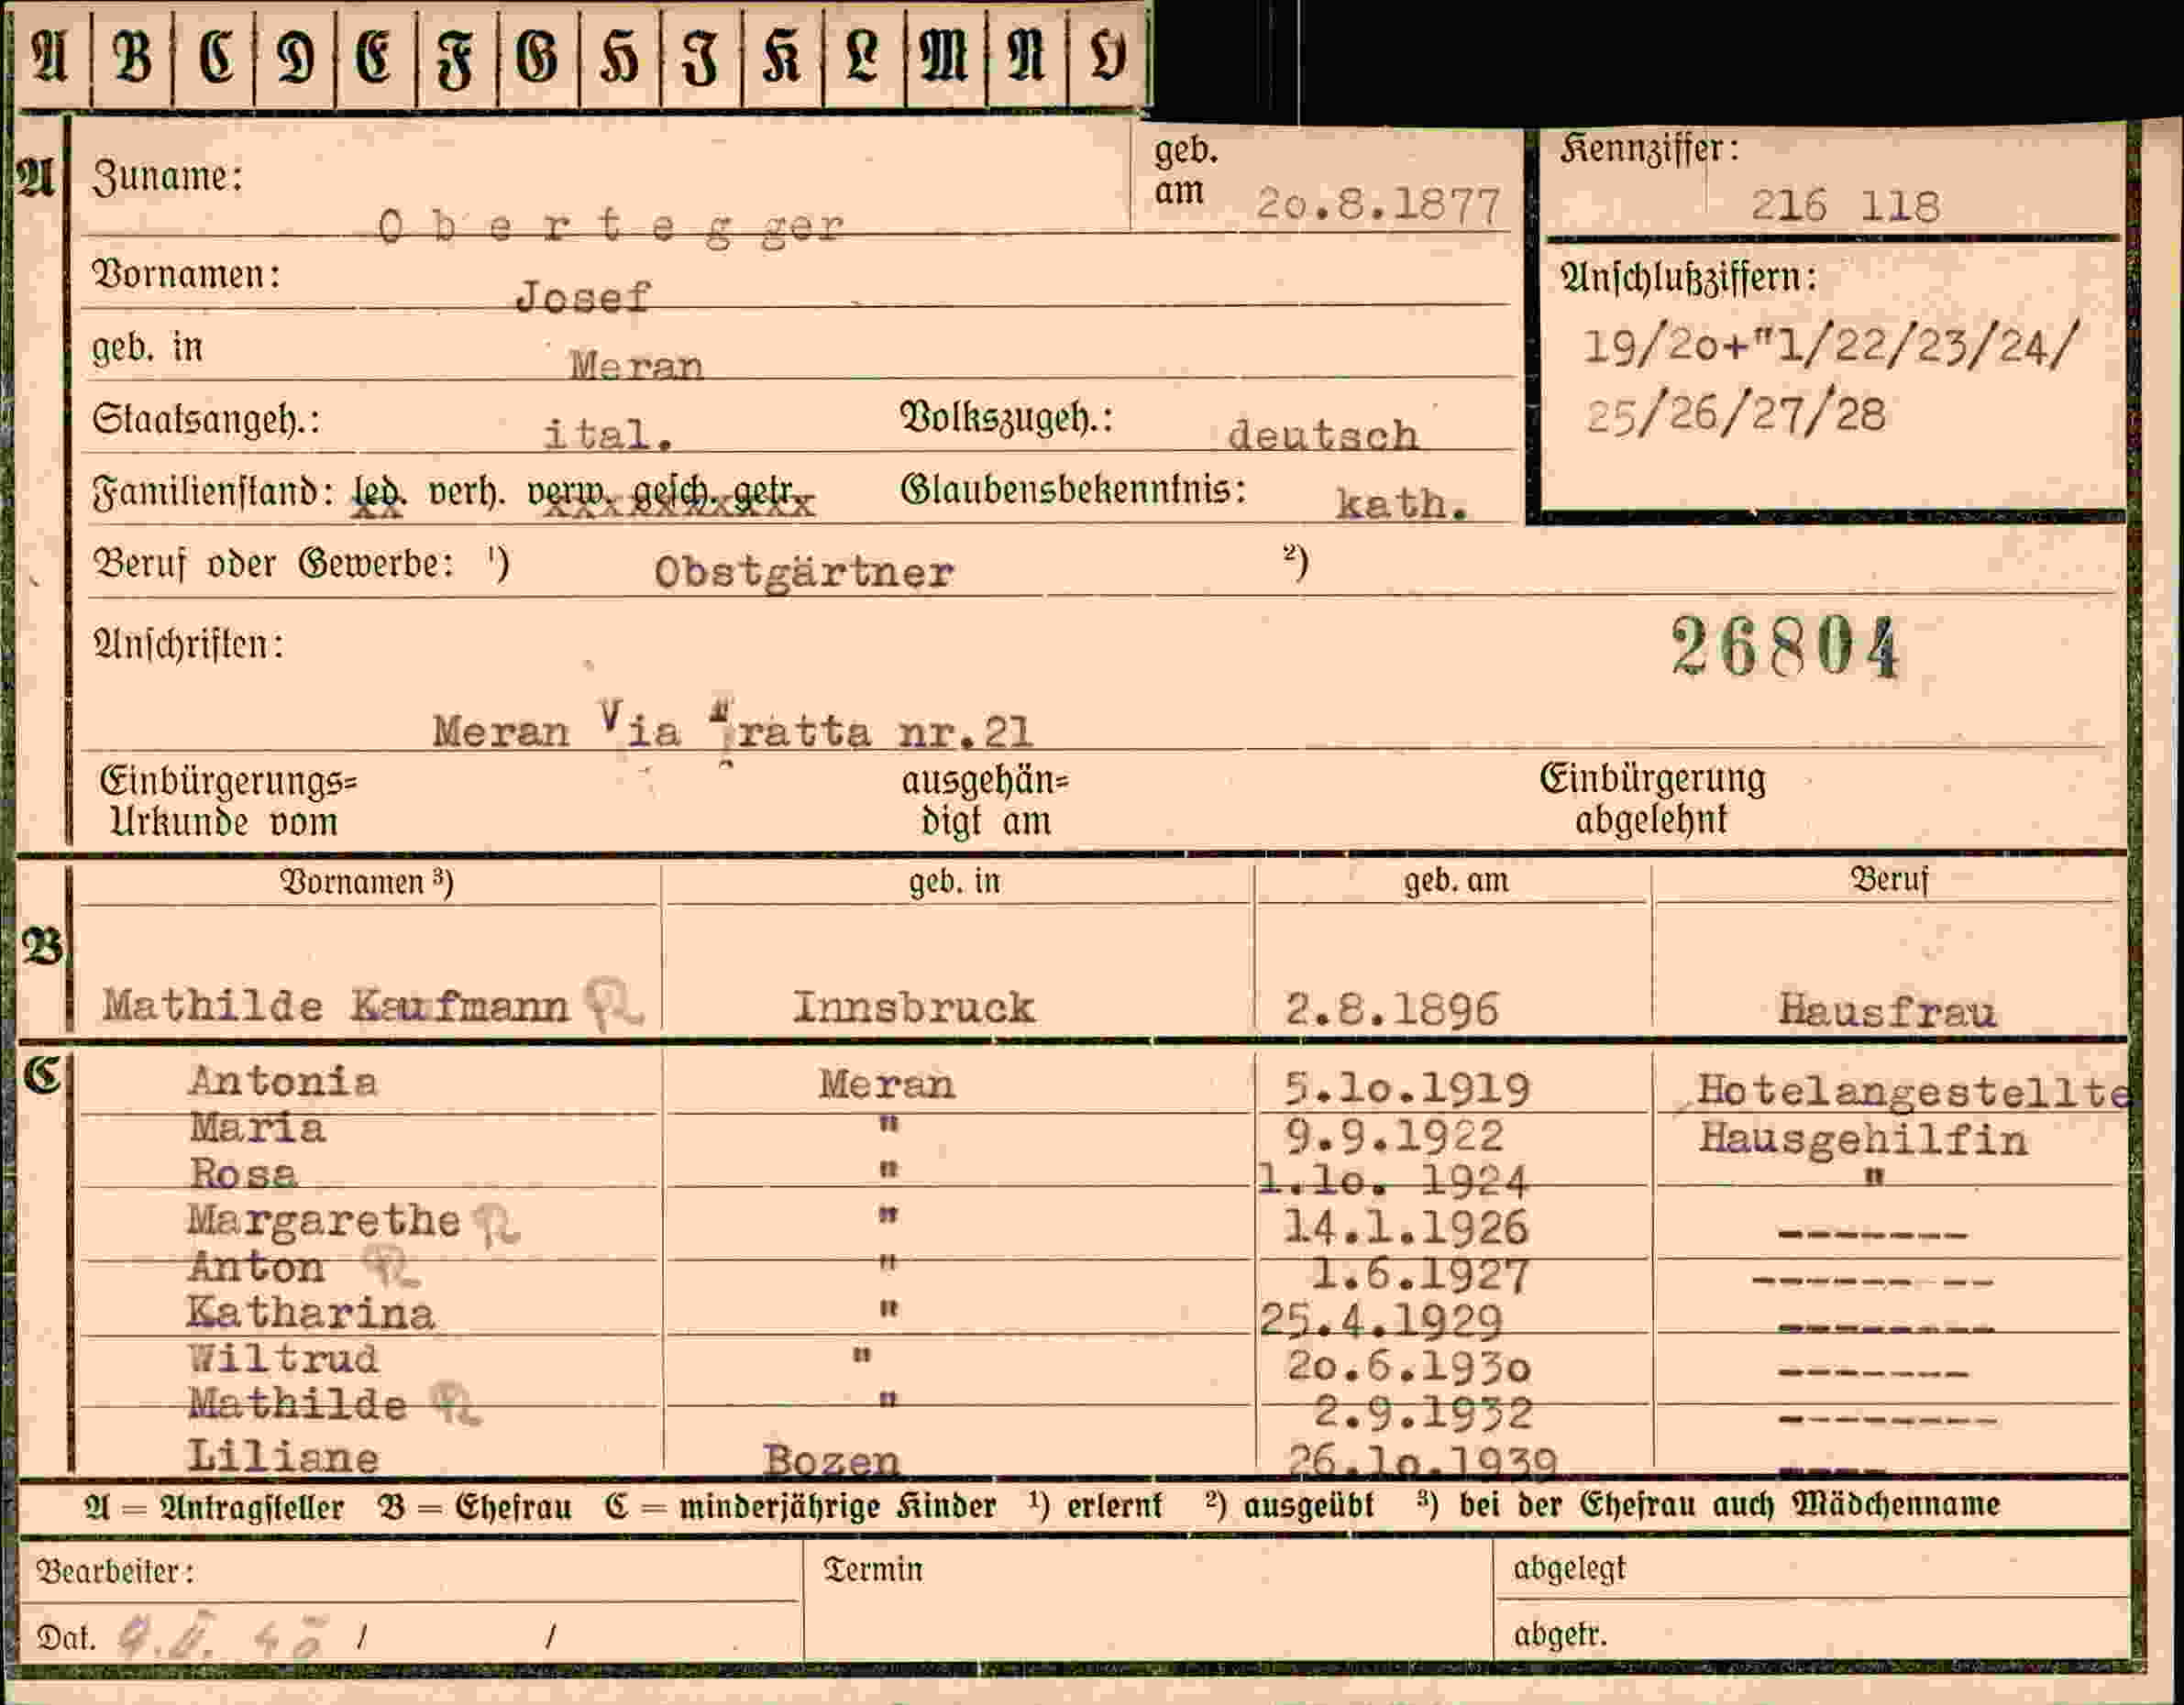 A B C D E F G H I K L M N O
A Zuname: geb. am 2o.8.1877 Kennziffer:
O b e r t e g ger 216 118
Vornamen: Josef Anschlußziffern:
geb. in Meran 19/2o+"1/22/23/24/
Staatsangeh.: ital. Volkszugeh.: deutsch 25/26/27/28
Familienstand: led. verh. verw. gesch. getr. Glaubensbekenntnis: kath.
Beruf oder Gewerbe: ¹) Obstgärtner ²)
Anschriften: 26804
Meran Via ratta nr.21
Einbürgerungs= ausgehän= Einbürgerung
Urkunde vom digt am abgelehnt
Vornamen ³) geb. in geb. am Beruf
B
Mathilde Kaufmann Innsbruck 2.8.1896 Hausfrau
C Antonia Meran 5.1o.1919 Hotelangestellte
Maria " 9.9.1922 Hausgehilfin
Rosa " 1.1o. 1924 "
Margarethe " 14.1.1926 -------
Anton " 1.6.1927 ------ --
Katharina " 25.4.1929 --------
Wiltrud " 2o.6.193o -------
Mathilde " 2.9.1932 --------
Liliane Bozen 26.1o.1939 ----
A = Antragsteller B = Ehefrau C = minderjährige Kinder ¹) erlernt ²) ausgeübt ³) bei der Ehefrau auch Mädchenname
Bearbeiter: Termin abgelegt
Dat. / / abgetr.